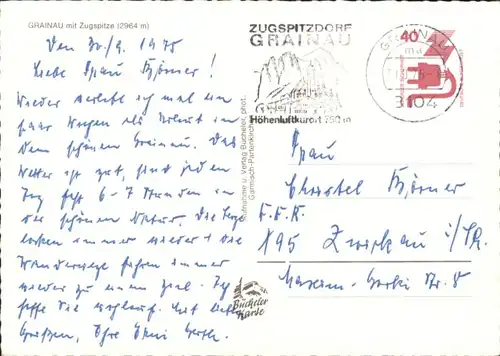 GRAINAU mit Zugspitze (2964 m)
Den 30/9. 1975
Liebe Frau Börner!
Wieder verlebe ich mal ein
paar Wochen als Urlaub in
dem schönen Grainau. Das
Wetter ist gut, sind jeden
Tag fast 6-7 Stunden in
der schönen Natur. Die Berge
locken immer wieder & die
Wanderwege führen immer
wieder zu einem Ziel. Ich
hoffe Sie wohlauf. Mit lieben
Grüßen, Ihre
ZUGSPITZDORF
GRAINAU
Höhenluftkurort 750 m
GRAINAU
8104
40
Aufnahme u. Verlag Bücheler, phot.
Garmisch-Partenkirchen
Bücheler
Karte
Frau
Christel Börner
195 Zwickau i/Sa.
Maxim-Gorki Str. 8